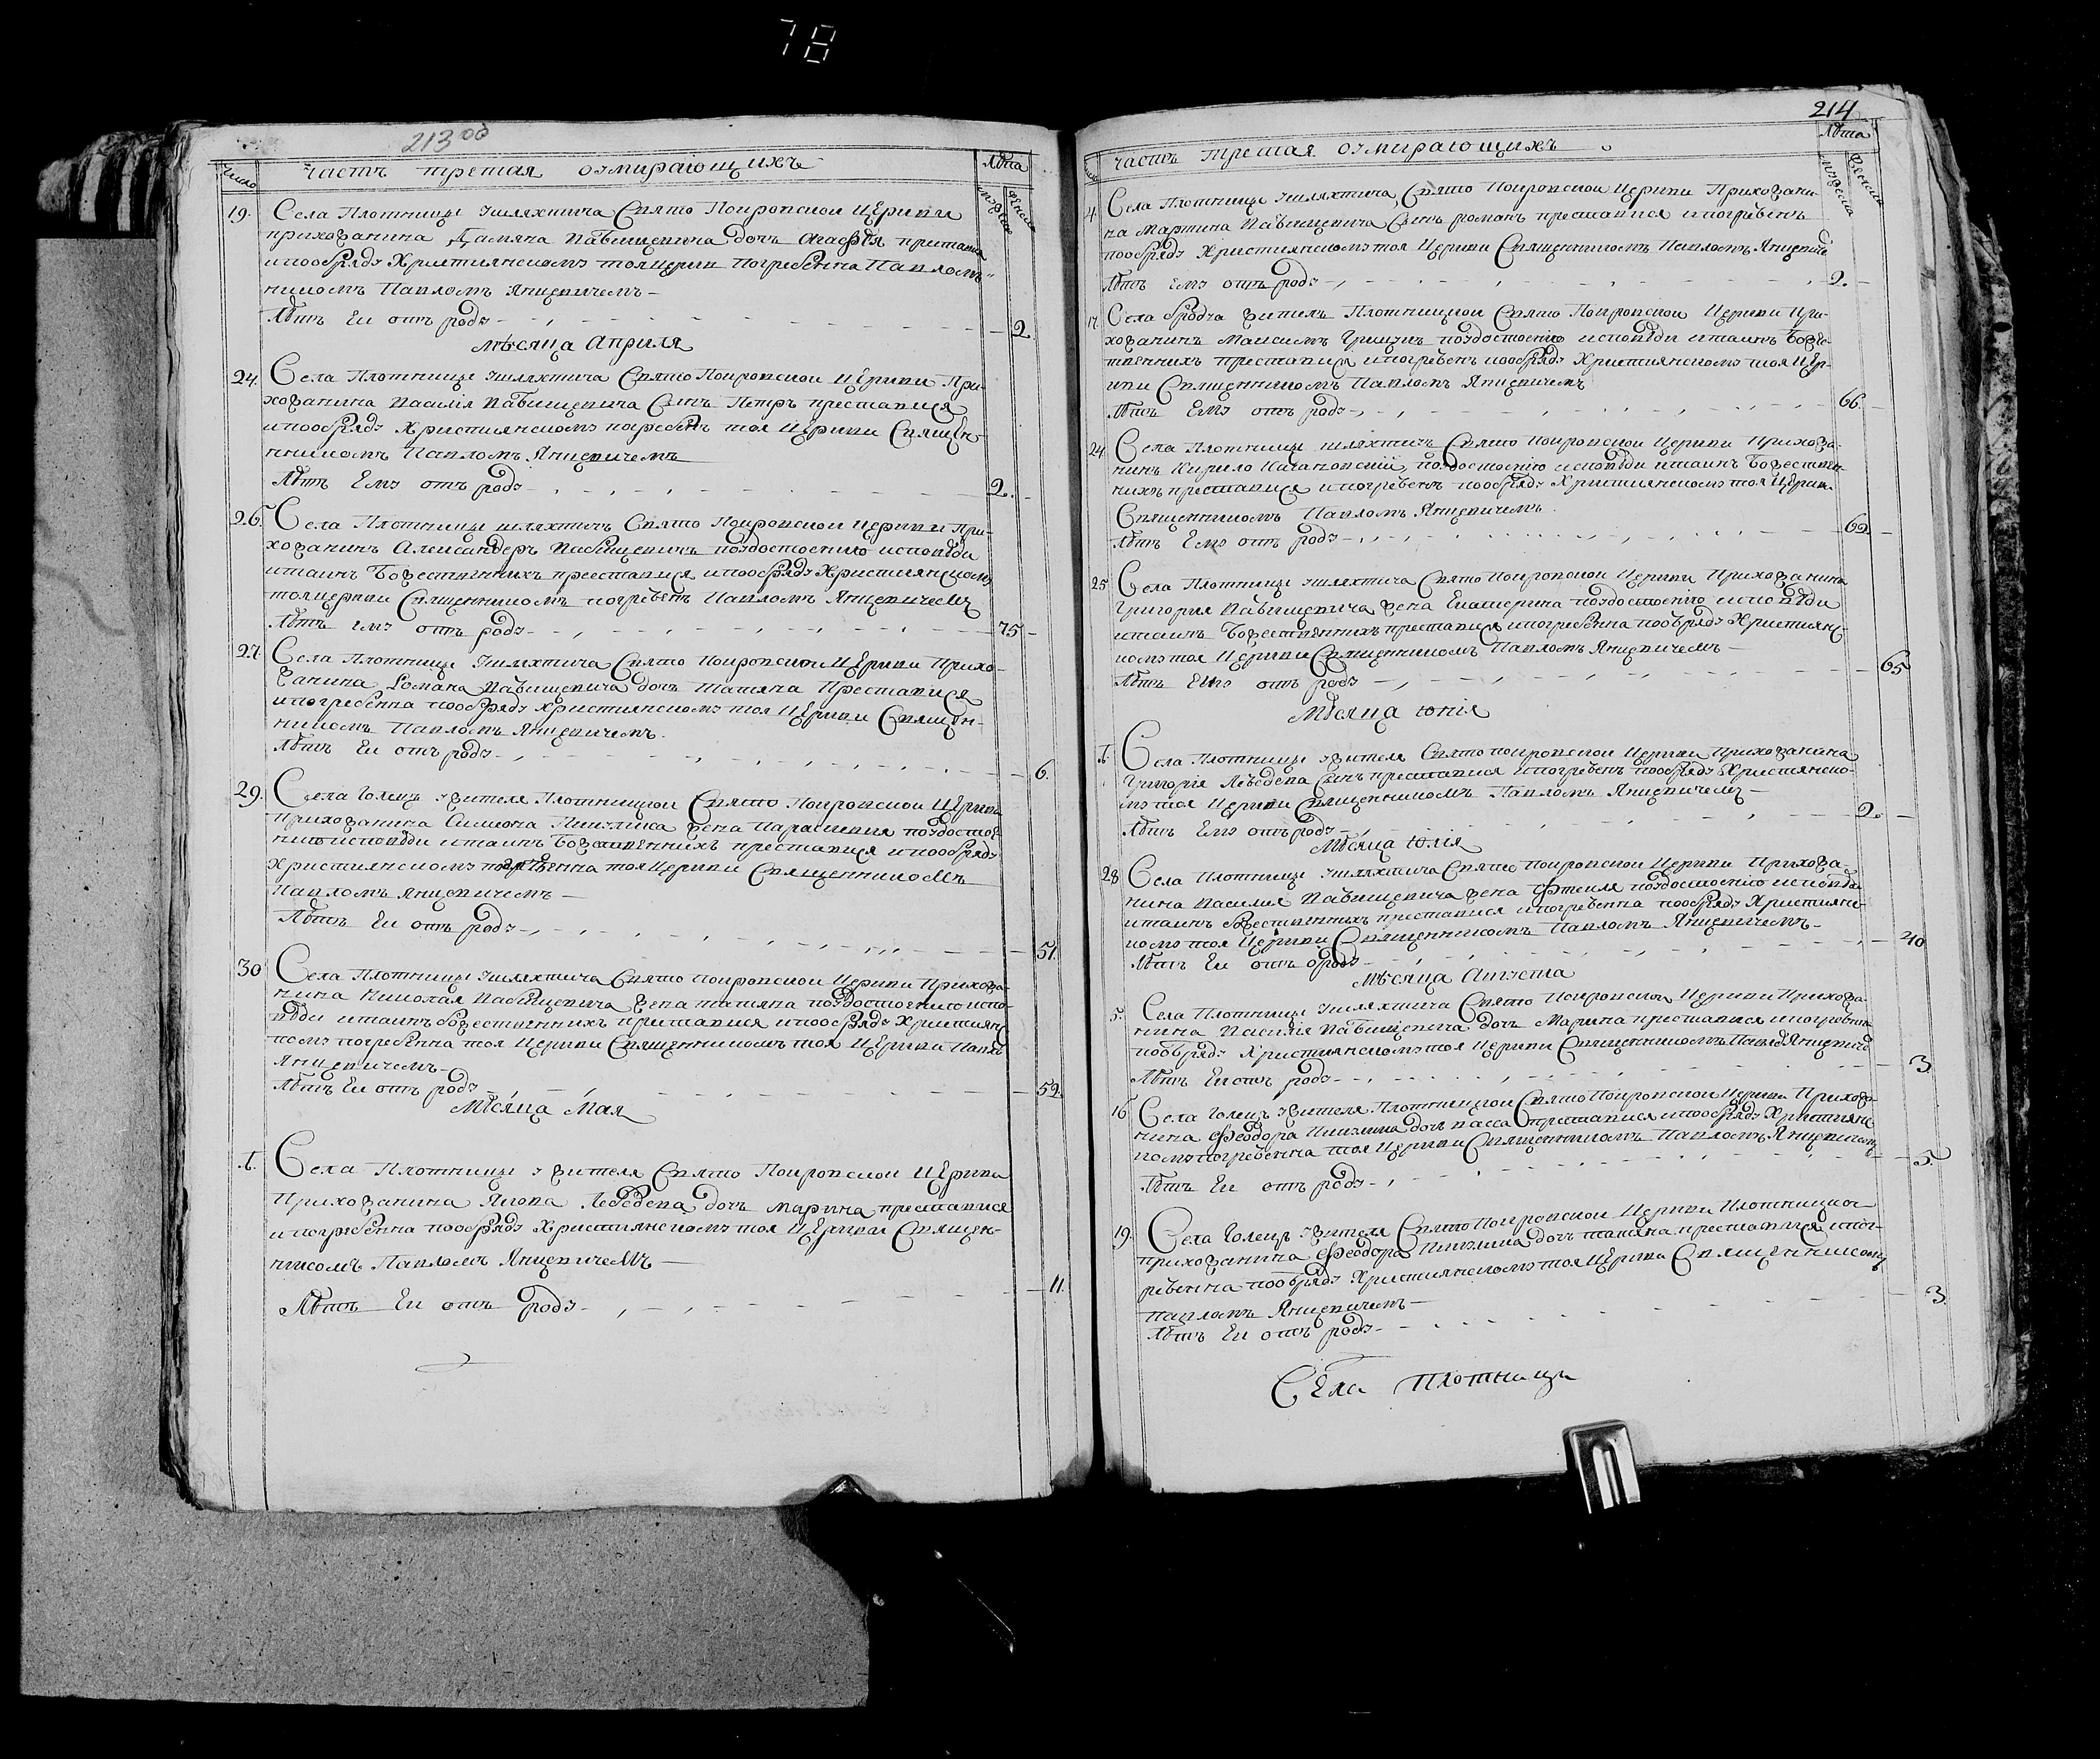 78
213 об
Число
Часть третая оумирающихъ
Лѣта
мужеска
женска
19.
Села Плотницы ушляхтича Свято Покровской Церкви
прихожанина Дамяна Павлищевича дочь Агафія
и пообряду Християнскому тоя церкви погребенна
Павломъ Янцевичемъ —
Лѣтъ Еи отъ роду — 2.
Мѣсяца Априля
24.
Села Плотницы ушляхтича Свято Покровской Церкви При-
хожанина Василія Сынъ Петръ преставися
и пообряду Християнскому погребенъ тоя Церкви Священ-
никомъ Павломъ Янцевичемъ
Лѣтъ Ему отъ роду — 2.
26.
Села Плотницы шляхтичъ Свято Покровской Церкви При-
хожанинъ Александеръ по удостоенію исповѣди
и таинъ Божественныхъ преставися и пообряду Християнскому
тоя церкви Священникомъ погребенъ Павломъ Янцевичемъ
Лѣтъ ему отъ роду — 75
27
Села Плотницы ушляхтича Свято Покровской Церкви Прихо-
жанина Романа дочь Татяна Преставися
и погребенна пообряду Християнскому тоя Церкви Священ-
никомъ Павломъ Янцевичемъ.
Лѣтъ Еи отъ роду — 6.
29.
Села Голецъ ужителя Плотницкой Свято Покровской Церкви
Прихожанина Симеона жена Параскевия по удостое-
нию исповѣди и таинъ Божественныхъ преставися и пообряду
Християнскому погребенна тоя Церкви Священникомъ
Павломъ Янцевичемъ —
Лѣтъ Еи отъ роду — 51.
30
Села Плотницы ушляхтича Свято Покровской Церкви Прихожа-
нина Николая жена татяна по удостоенію испо-
вѣди и таинъ божественныхъ преставися и пообряду Християнс
кому погребенна тоя Церкви Священникомъ тоя Церкви
Янцевичемъ —
Лѣтъ Еи отъ роду — 52.
Мѣсяца Мая
Села Плотницы ужителя Свято Покровской Церкви
Прихожанина Якова Лебедева дочь Марина преставися
и погребенна пообряду Християнскому тоя Церкви Священ-
никомъ Павломъ Янцевичемъ —
Лѣтъ Еи отъ роду — 11.
214
Часть третая оумирающихъ
Лѣта
мужеска
женска
4.
Села Плотницы ушляхтича Свято Покровской Церкви Прихожани-
на Мартина Сынъ роман преставися и погребенъ
пообряду Християнскому тоя Церкви Священникомъ Павломъ
Лѣтъ Ему отъ роду — 2.
17.
Села Бродча житель Плотницкой Свято Покровской Церкви При-
хожанинъ Максимъ Грицукъ по удостоенію исповѣди и таинъ Боже-
твенныхъ преставися и погребенъ пообряду Християнскому тоя Цер-
кви Священникомъ Павломъ Янцевичемъ
Лѣтъ Ему отъ роду — 66.
24.
Села Плотницы шляхтичъ Свято Покровской Церкви Прихожа-
нинъ Кирило Качановскій по удостоенію исповѣди и таинъ Божествен-
ныхъ преставися и погребенъ пообряду Християнскому тоя Церкви
Священникомъ Павломъ Янцевичемъ.
Лѣтъ Ему отъ роду — 62.
25
Села Плотницы ушляхтича Свято Покровской Церкви Прихожанина
Григорія жена Екатерина по удостоенію исповѣди
и таинъ Божественныхъ преставися и погребенна пообряду Християнс
кому тоя Церкви Священникомъ Павломъ Янцевичемъ —
Лѣтъ Ему отъ роду — 65
Мѣсяца юнія
Села Плотницы ужителя Свято покровской Церкви Прихожанина
Григорія Лебедева Сынъ преставися и погребенъ пообряду Християнско-
му тоя Церкви Священникомъ Павломъ Янцевичемъ —
Лѣтъ Ему отъ роду — 2.
Мѣсяца юлія
28
Села Плотницы ушляхтича Свято Покровской Церкви Прихожа-
нина Василія жена по удостоенію исповѣди
и таинъ Божественныхъ преставися и погребенна пообряду Християнс
кому тоя Церкви Священникомъ Павломъ Янцевичемъ —
Лѣтъ Еи отъ роду — 40
Мѣсяца Августа
5.
Села Плотницы ушляхтича Свято Покровской Церкви Прихожа-
нина Василія дочь Марина преставися и погребенна
пообряду Християнскому тоя Церкви Священникомъ
Лѣтъ Еи отъ роду — 3.
16
Села Голецъ ужителя Плотницкой Свято Покровской Церкви Прихожа-
нина Феодора дочь васса преставися и пообряду Християнс
кому погребенна тоя Церкви Священникомъ Павломъ Янцевичемъ
Лѣтъ Еи отъ роду — 5.
19.
Села Голецъ ужителя Свято Покровской Церкви Плотницкой
прихожанина Феодора дочь татяна преставися и пог-
ребенна пообряду Християнскому тоя Церкви Священникомъ
Павломъ Янцевичемъ —
Лѣтъ Еи отъ роду — 3.
Села Плотницы